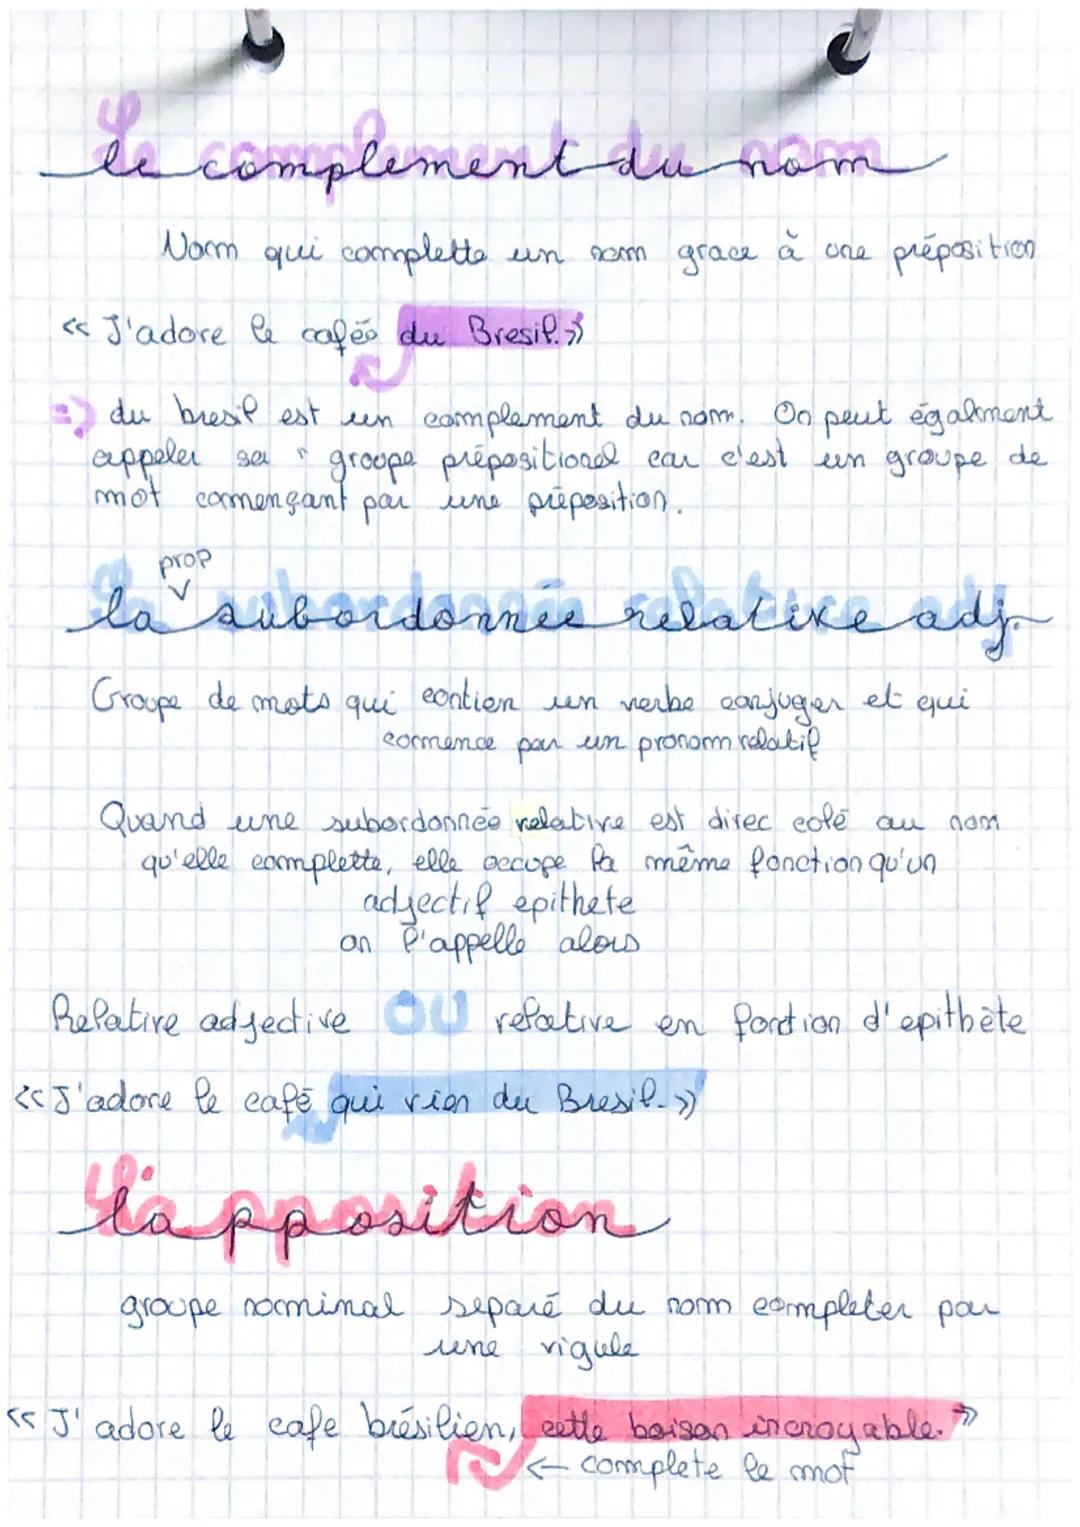 le complement du nom
Nom qui complette un nom grace à une préposition
<< J'adore le café du Bresil. >>
=> du bresil est un complement du nom. On peut égalment
appeler sa groupe prépositionel car c'est un groupe de
mot commençant par une préposition.
prop
la subordonnée relative adj.
Groupe de mots qui contien un verbe conjuger et qui
commence par un pronom relatif
Quand une subordonnée relative est direc colé au nom
qu'elle complette, elle occupe la même fonction qu'un
adjectif epithete
on l'appelle alors
Relative adjective OU relative en fontion d'epithète
<< J'adore le café qui vien du Bresil. >>
l'apposition
groupe nominal separé du nom completer par
une vigule
<< J'adore le cafe brésilien, cette boison incroyable. >>
← complete le mot